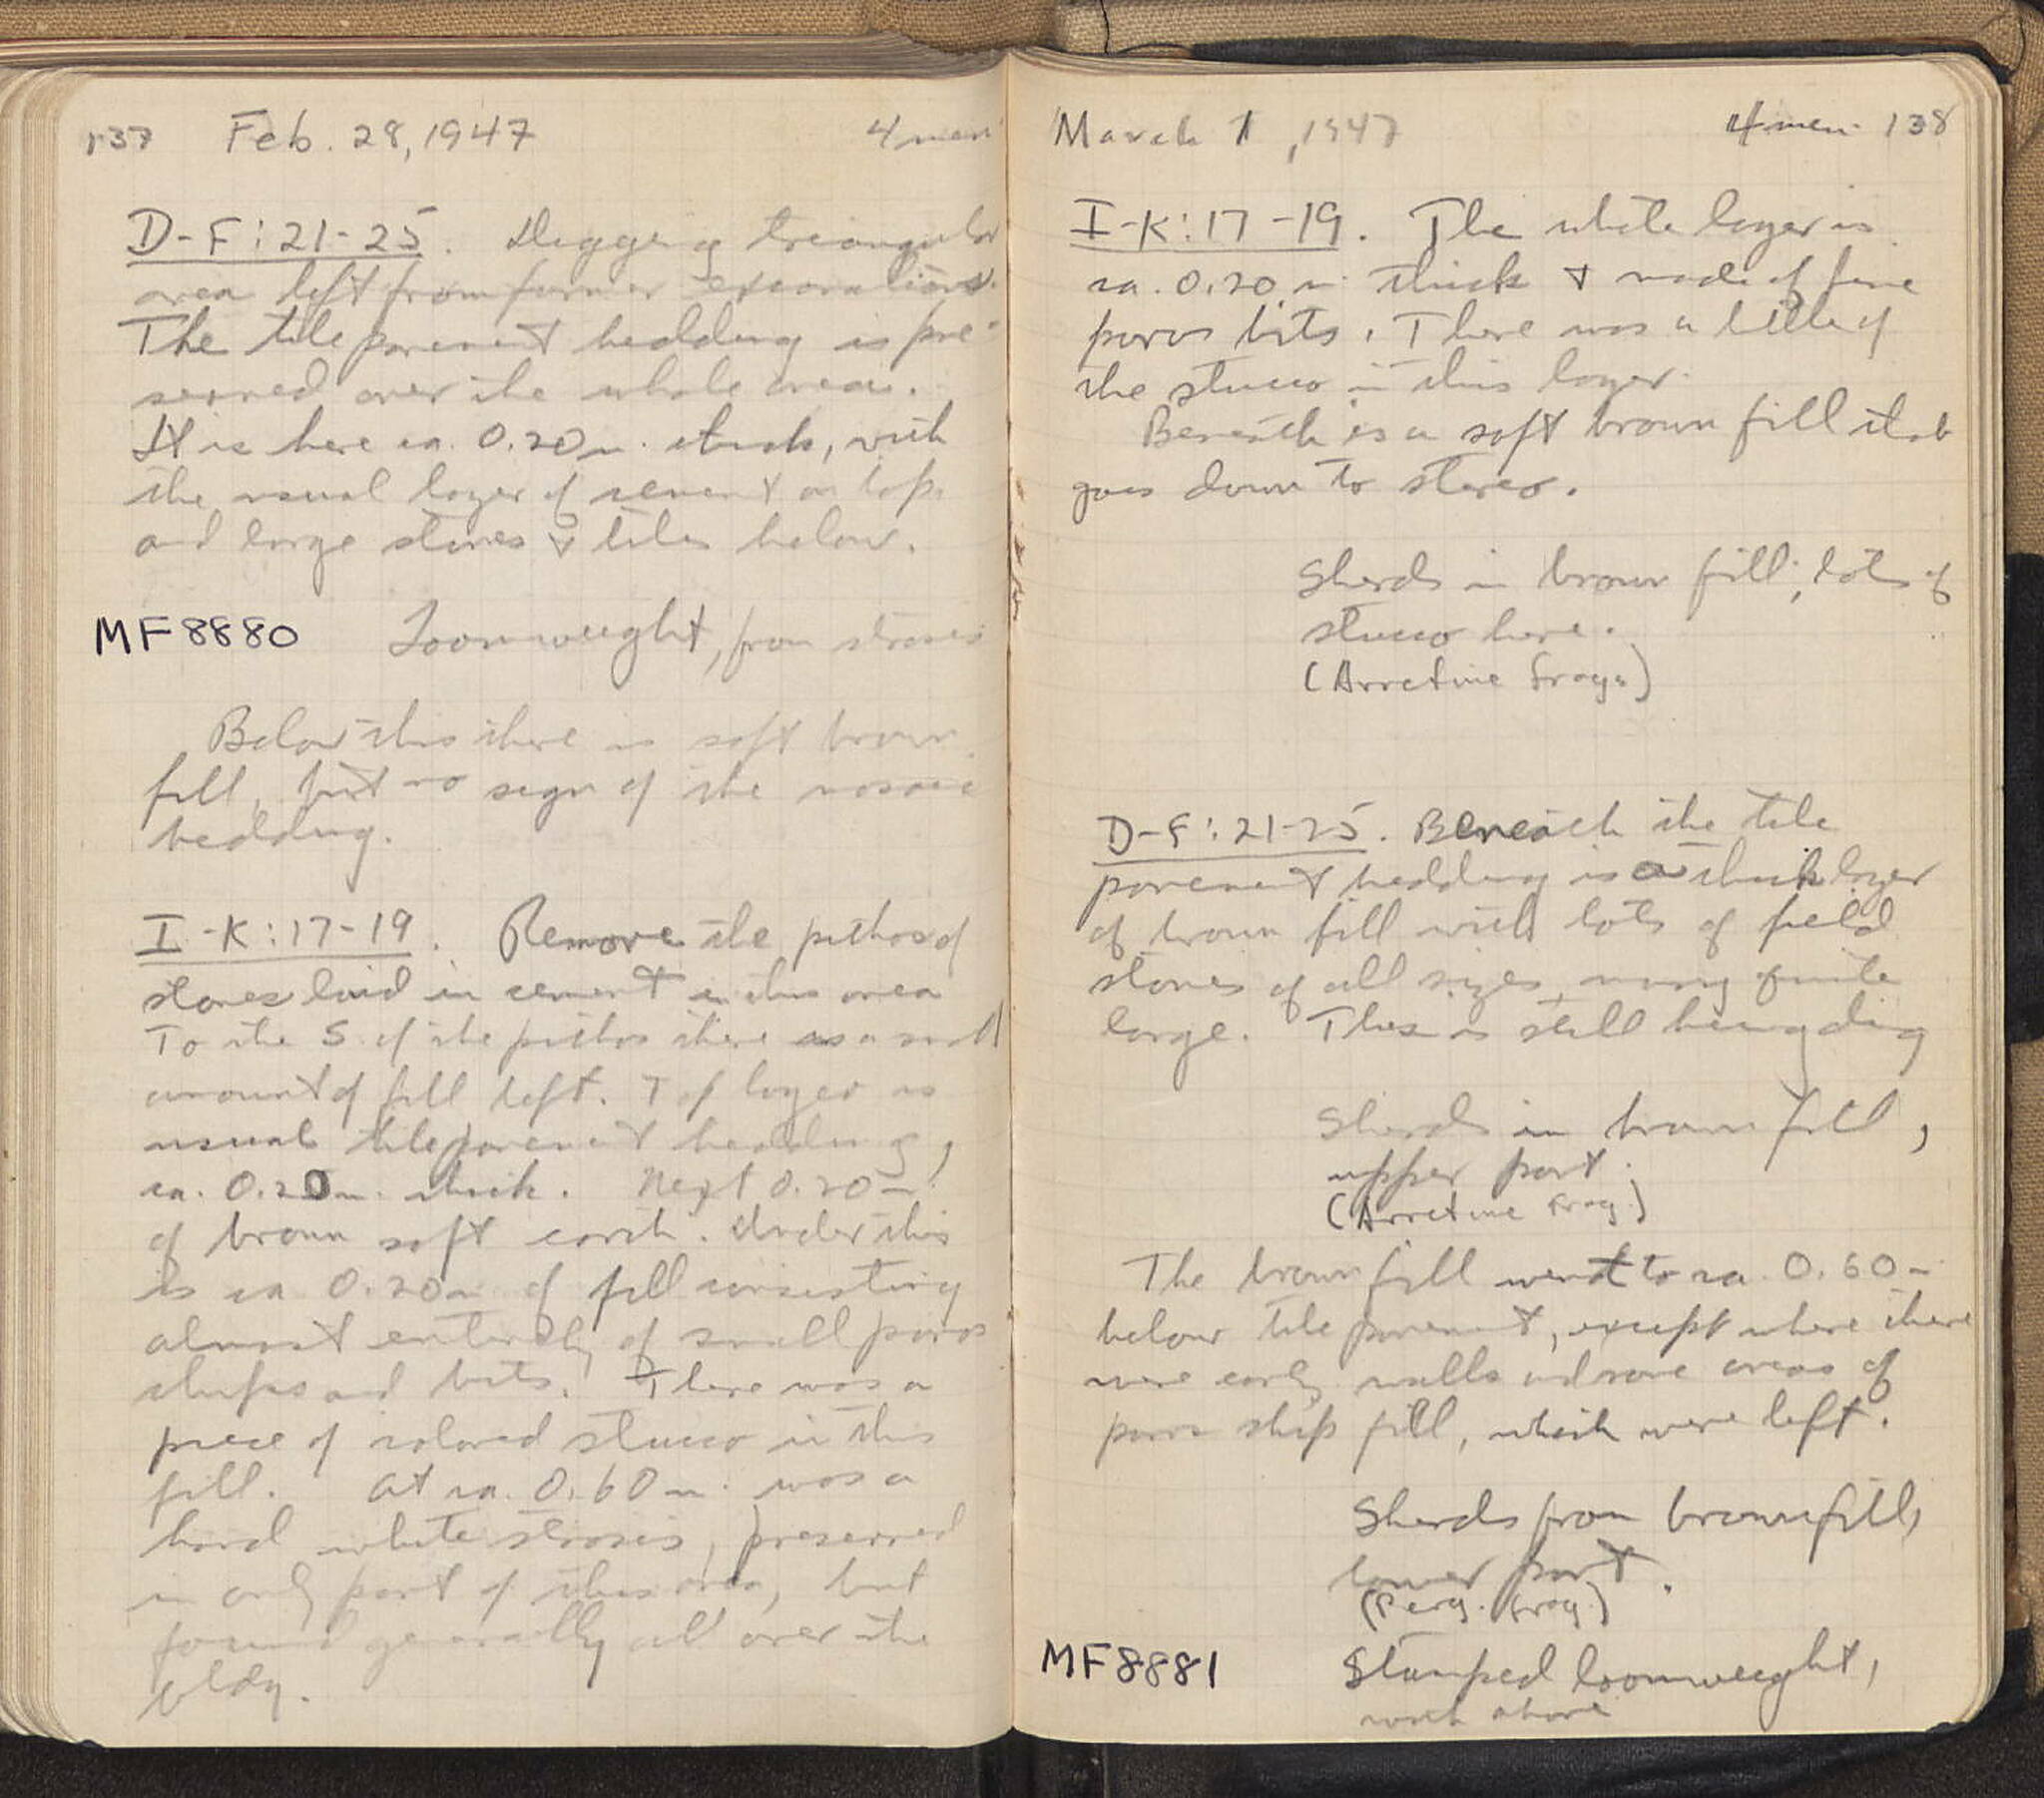 137 Feb. 28, 1947 4 men
D-F:21-25. Digging triangular
area left from former excavations.
The tile pavement bedding is pre-
served over the whole area.
It is here ca. 0.20 m. thick, with
the usual layer of cement on top
and large stones & tiles below.
MF 8880 Loomweight, from stroses
Below this there is soft brown
fill, but no sign of the mosaic
bedding.
I-K:17-19. Remove the pithos of
stones laid in cement in this area
To the S. of the pithos there is a small
amount of fill left. Top layer is
usual tile pavement bedding,
ca. 0.20 m. thick. Next 0.20 m.
of brown soft earth. Under this
is ca 0.20 m of fill consisting
almost entirely of small poros
chips and bits. There was a
piece of colored stucco in this
fill. At ca. 0.60 m. was a
hard white stroses, preserved
in only part of this area, but
found generally all over the
bldg.
March 1, 1947 4 men 138
I-K:17-19. The white layer is
ca. 0.20 m. thick & made of fine
poros bits. There was a little of
the stucco in this layer.
Beneath is a soft brown fill that
goes down to stereo.
Sherds in brown fill; lots of
stucco here.
(Arretine frags)
D-F:21-25. Beneath the tile
pavement bedding is a thick layer
of brown fill with lots of field
stones of all sizes, many quite
large. This is still being dug
Sherds in brown fill,
upper part.
(Arretine frag.)
The brown fill went to ca. 0.60 m
below tile pavement, except where there
were early walls and some areas of
poros chip fill, which were left.
Sherds from brown fill,
lower part.
(Perg. frag.)
MF 8881 Stamped loomweight,
with above